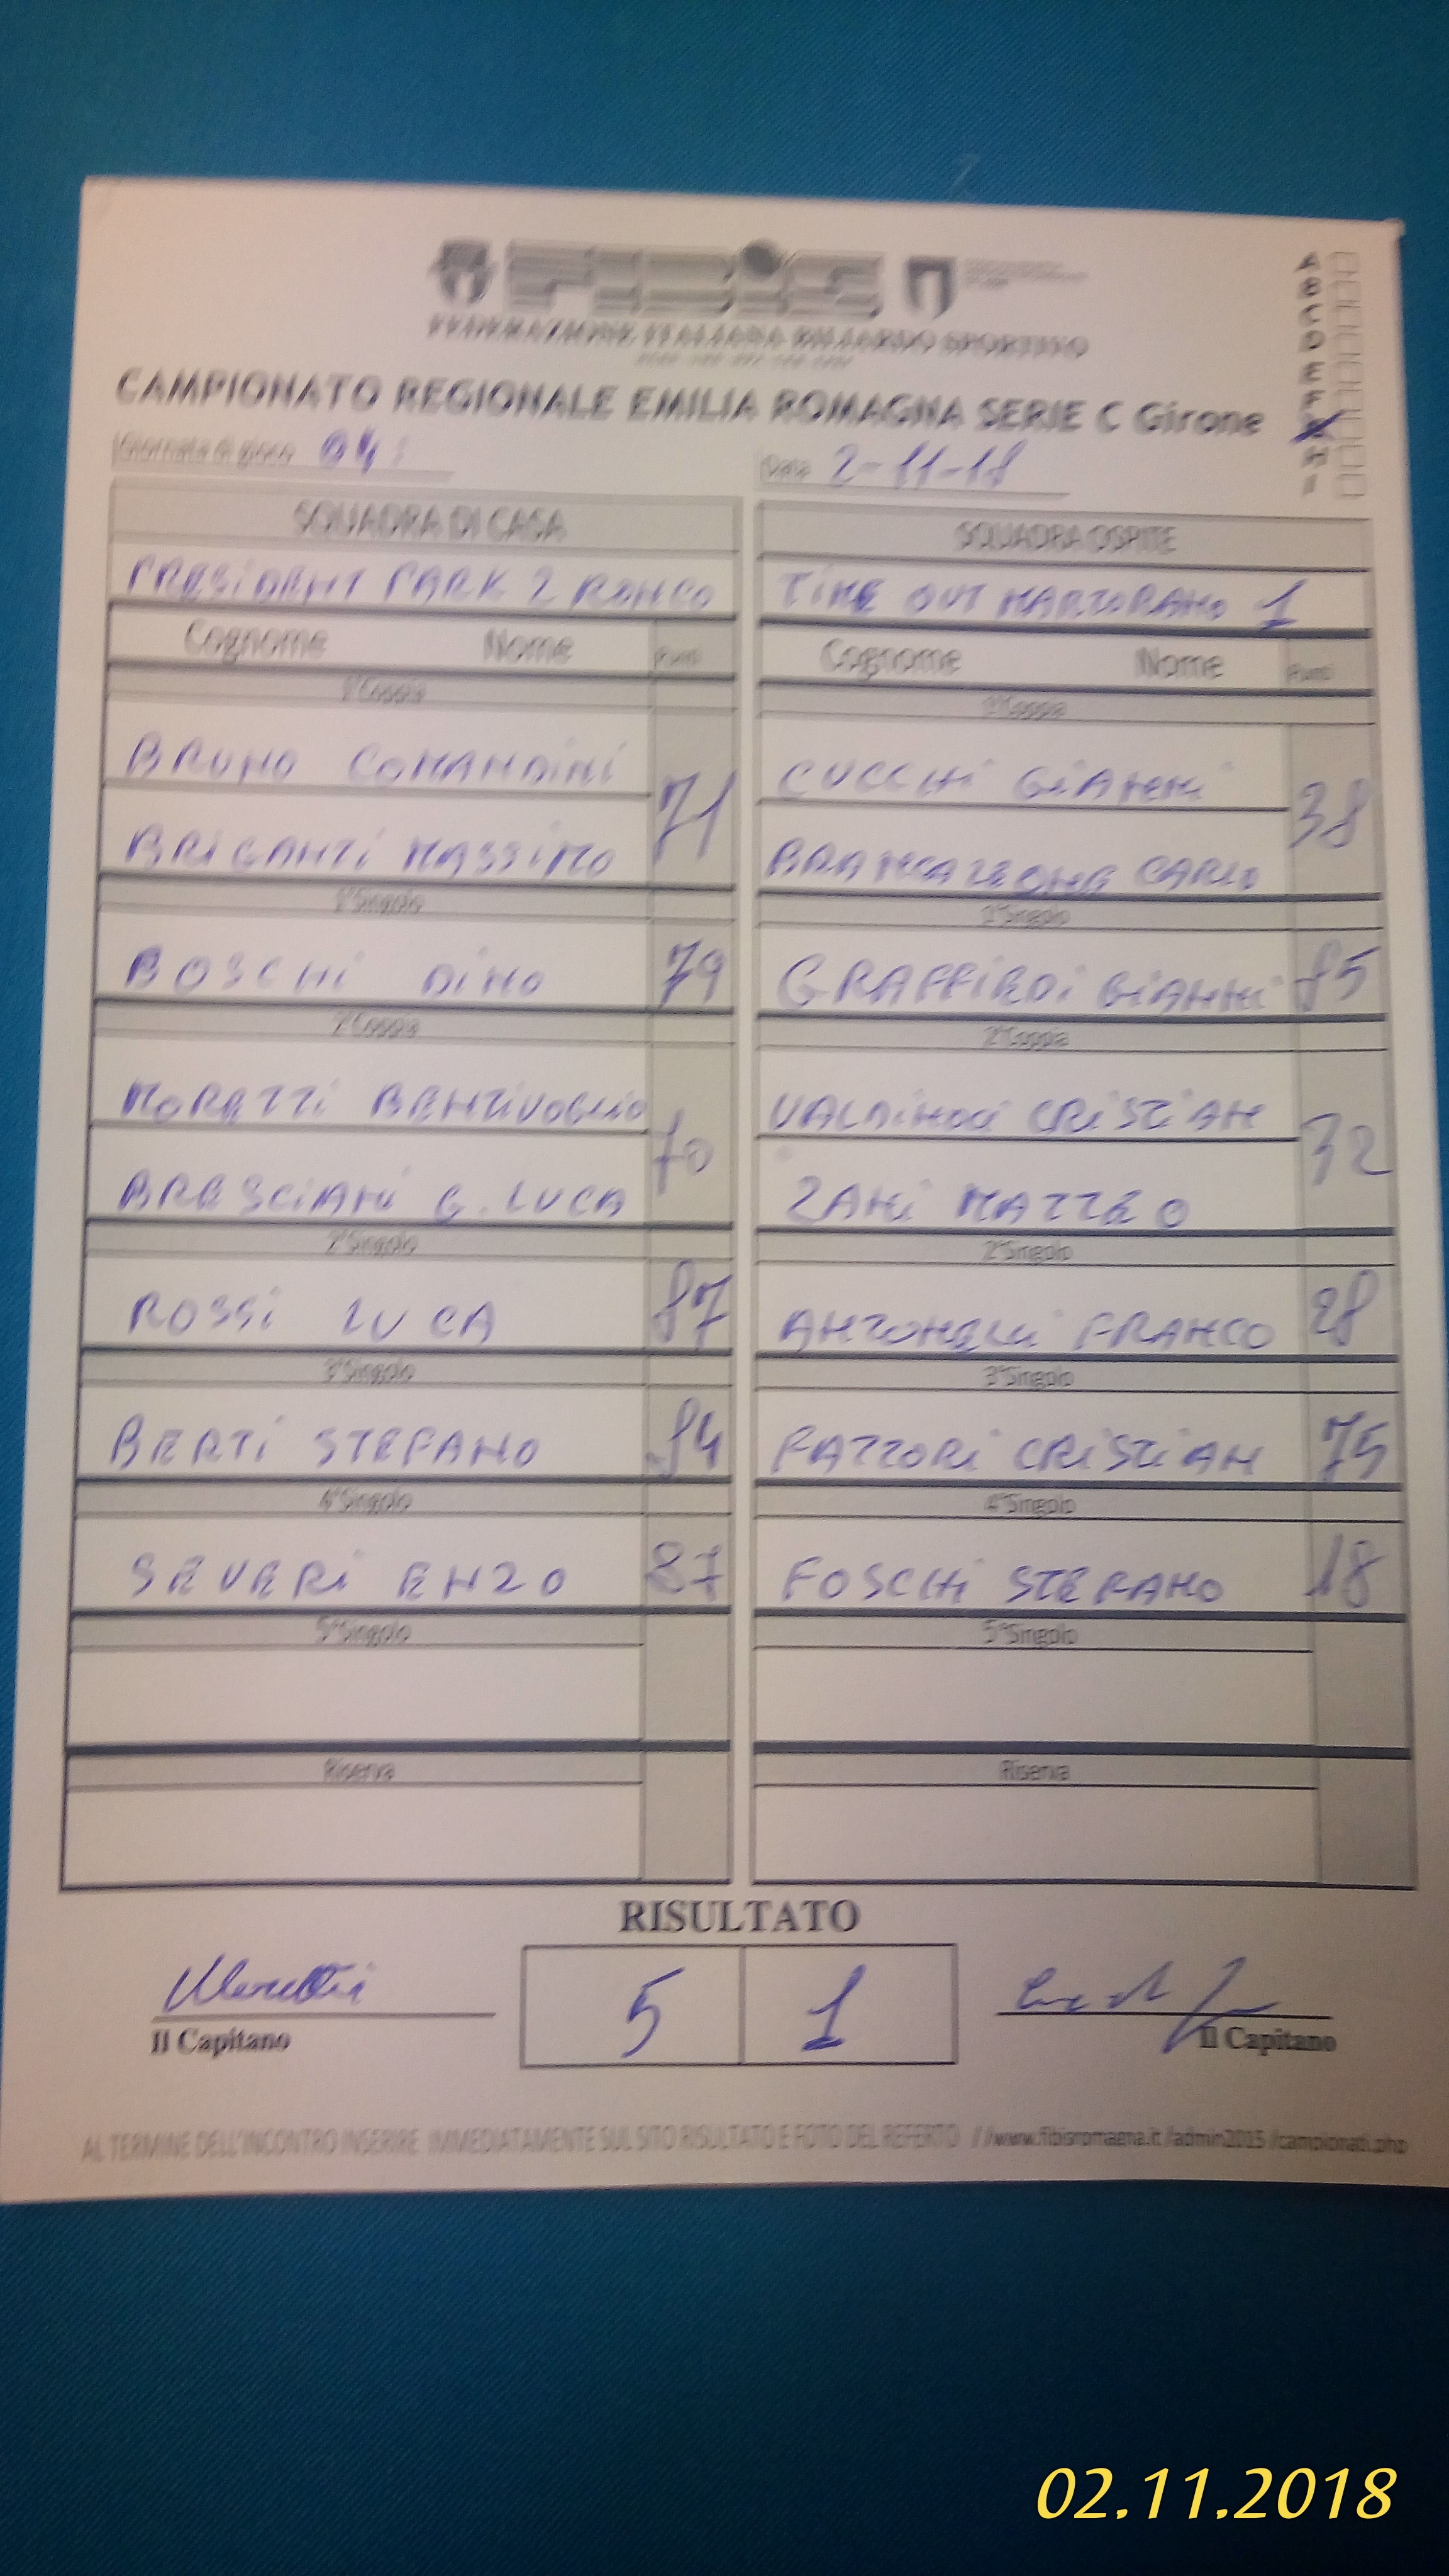 FIBIS
FEDERAZIONE ITALIANA BILIARDO SPORTIVO
A
B
C
D
E
F
H
I
CAMPIONATO REGIONALE EMILIA ROMAGNA SERIE C Girone
Giornata di gioco 04
Data 2-11-18
SQUADRA DI CASA SQUADRA OSPITE
PRESIDENT PARK 2 RONCO TIME OUT MARTORANO 1
Cognome Nome Punti Cognome Nome Punti
1°Coppia 1°Coppia
BRUNO COMANDINI 71 CUCCHI GIANNI 38
BRIGANTI MASSIMO BRANCALEONE CARLO
1°Singolo 1°Singolo
BOSCHI DINO 79 GRAFFIEDI GIANNI 85
2°Coppia 2°Coppia
MORETTI BENTIVOGLIO 70 VALDINOCI CRISTIAN 32
BRESCIANI G. LUCA ZANI MATTEO
2°Singolo 2°Singolo
ROSSI LUCA 87 ANTONELLI FRANCO 28
3°Singolo 3°Singolo
BERTI STEFANO 84 FATTORI CRISTIAN 75
4°Singolo 4°Singolo
SEVERI ENZO 87 FOSCHI STEFANO 18
5°Singolo 5°Singolo
Riserva Riserva
RISULTATO
Moretti 5 1
Il Capitano Il Capitano
AL TERMINE DELL'INCONTRO INSERIRE IMMEDIATAMENTE SUL SITO RISULTATO E FOTO DEL REFERTO //www.fibisromagna.it /admin2015 /campionati.php
02.11.2018